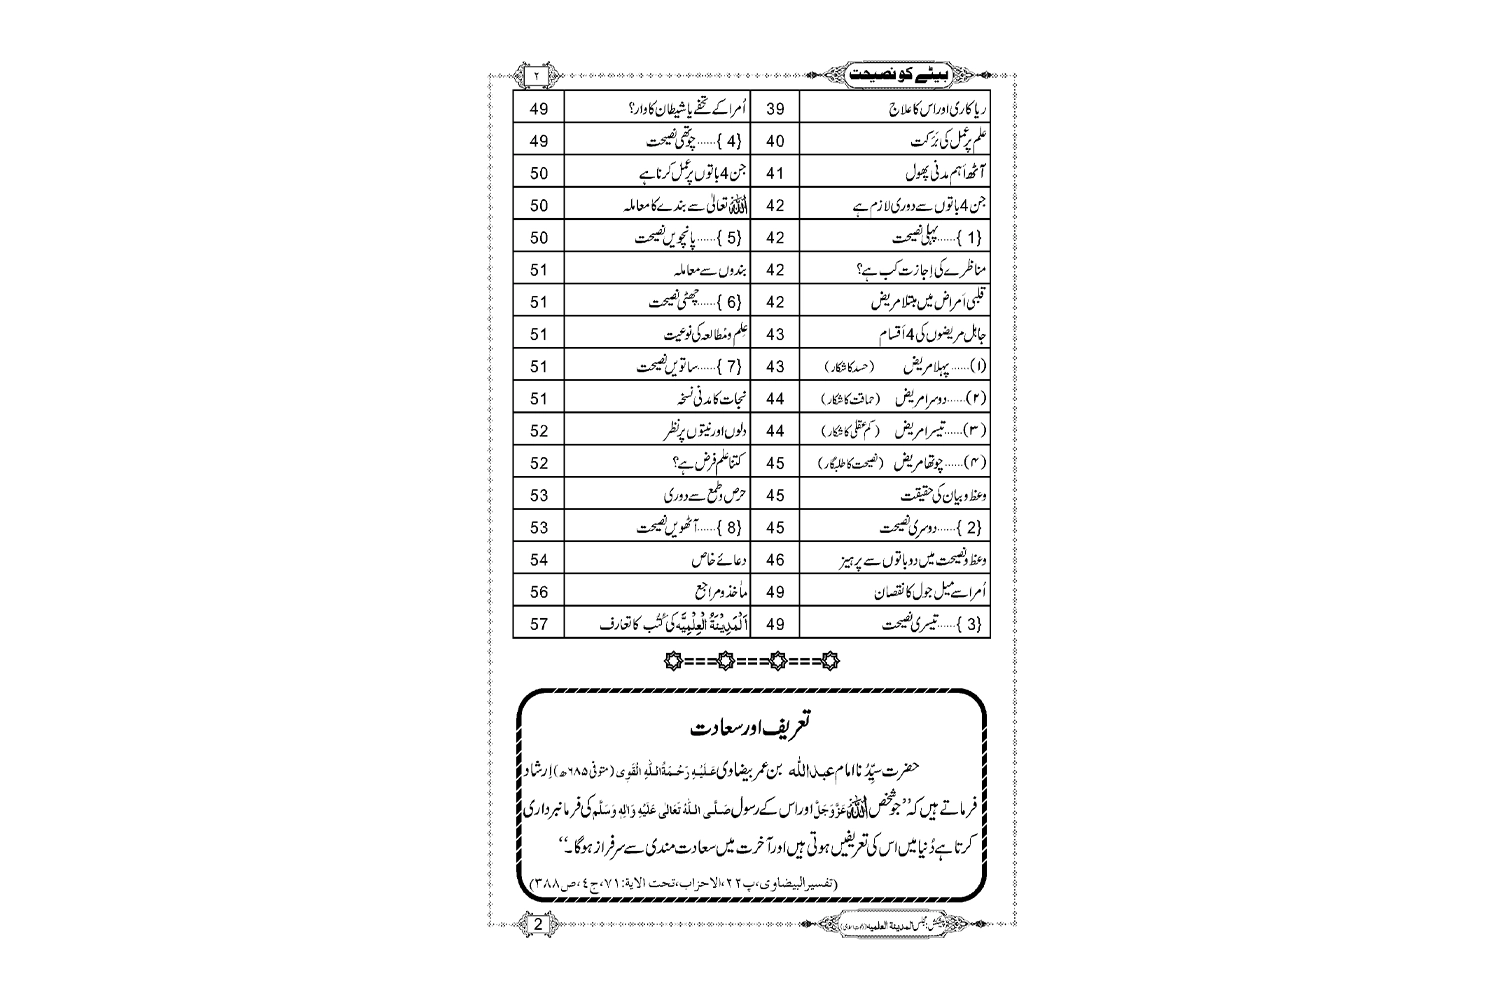 بیٹے کو نصیحت ۲
ریاکاری اور اس کا علاج 39 اُمرا کے تحفے یا شیطان کا وار؟ 49
علم پر عمل کی بَرَکت 40 {4}......چوتھی نصیحت 49
آٹھ اَہم مدنی پھول 41 جن 4 باتوں پر عمل کرنا ہے 50
جن 4 باتوں سے دوری لازم ہے 42 اللہ تعالیٰ سے بندے کا معاملہ 50
{1}......پہلی نصیحت 42 {5}......پانچویں نصیحت 50
مناظرے کی اِجازت کب ہے؟ 42 بندوں سے معاملہ 51
قلبی اَمراض میں مبتلا مریض 42 {6}......چھٹی نصیحت 51
جاہل مریضوں کی 4 اَقسام 43 عِلم و مُطالعہ کی نوعیت 51
(۱)......پہلا مریض (حسد کا شکار) 43 {7}......ساتویں نصیحت 51
(۲)......دوسرا مریض (حماقت کا شکار) 44 نجات کا مدنی نسخہ 51
(۳)......تیسرا مریض (کم عقلی کا شکار) 44 دلوں اور نیتوں پر نظر 52
(۴)......چوتھا مریض (نصیحت کا طلبگار) 45 کتنا علم فرض ہے؟ 52
وعظ و بیان کی حقیقت 45 حرص و طمع سے دوری 53
{2}......دوسری نصیحت 45 {8}......آٹھویں نصیحت 53
وعظ و نصیحت میں دو باتوں سے پرہیز 46 دعائے خاص 54
اُمرا سے میل جول کا نقصان 49 ماٰخذ و مراجع 56
{3}......تیسری نصیحت 49 اَلْمَدِیْنَۃُ الْعِلْمِیَّہ کی کُتُب کا تعارف 57
تعریف اور سعادت
حضرت سیِّدُنا امام عبداللہ بن عمر بیضاوی عَلَیْہِ رَحْمَۃُ اللہِ الْقَوِی (متوفی ۶۸۵ھ) اِرشاد
فرماتے ہیں کہ ’’جو شخص اللہ عَزَّوَجَلَّ اور اس کے رسول صَلَّی اللہُ تَعَالٰی عَلَیْہِ وَاٰلِہٖ وَسَلَّم کی فرمانبرداری
کرتا ہے دُنیا میں اس کی تعریفیں ہوتی ہیں اور آخرت میں سعادت مندی سے سرفراز ہوگا۔‘‘
(تفسیر البیضاوی، پ۲۲، الاحزاب، تحت الایۃ:۷۱، ج٤، ص۳۸۸)
پیشکش: مجلس المدینۃ العلمیہ (دعوتِ اسلامی) 2